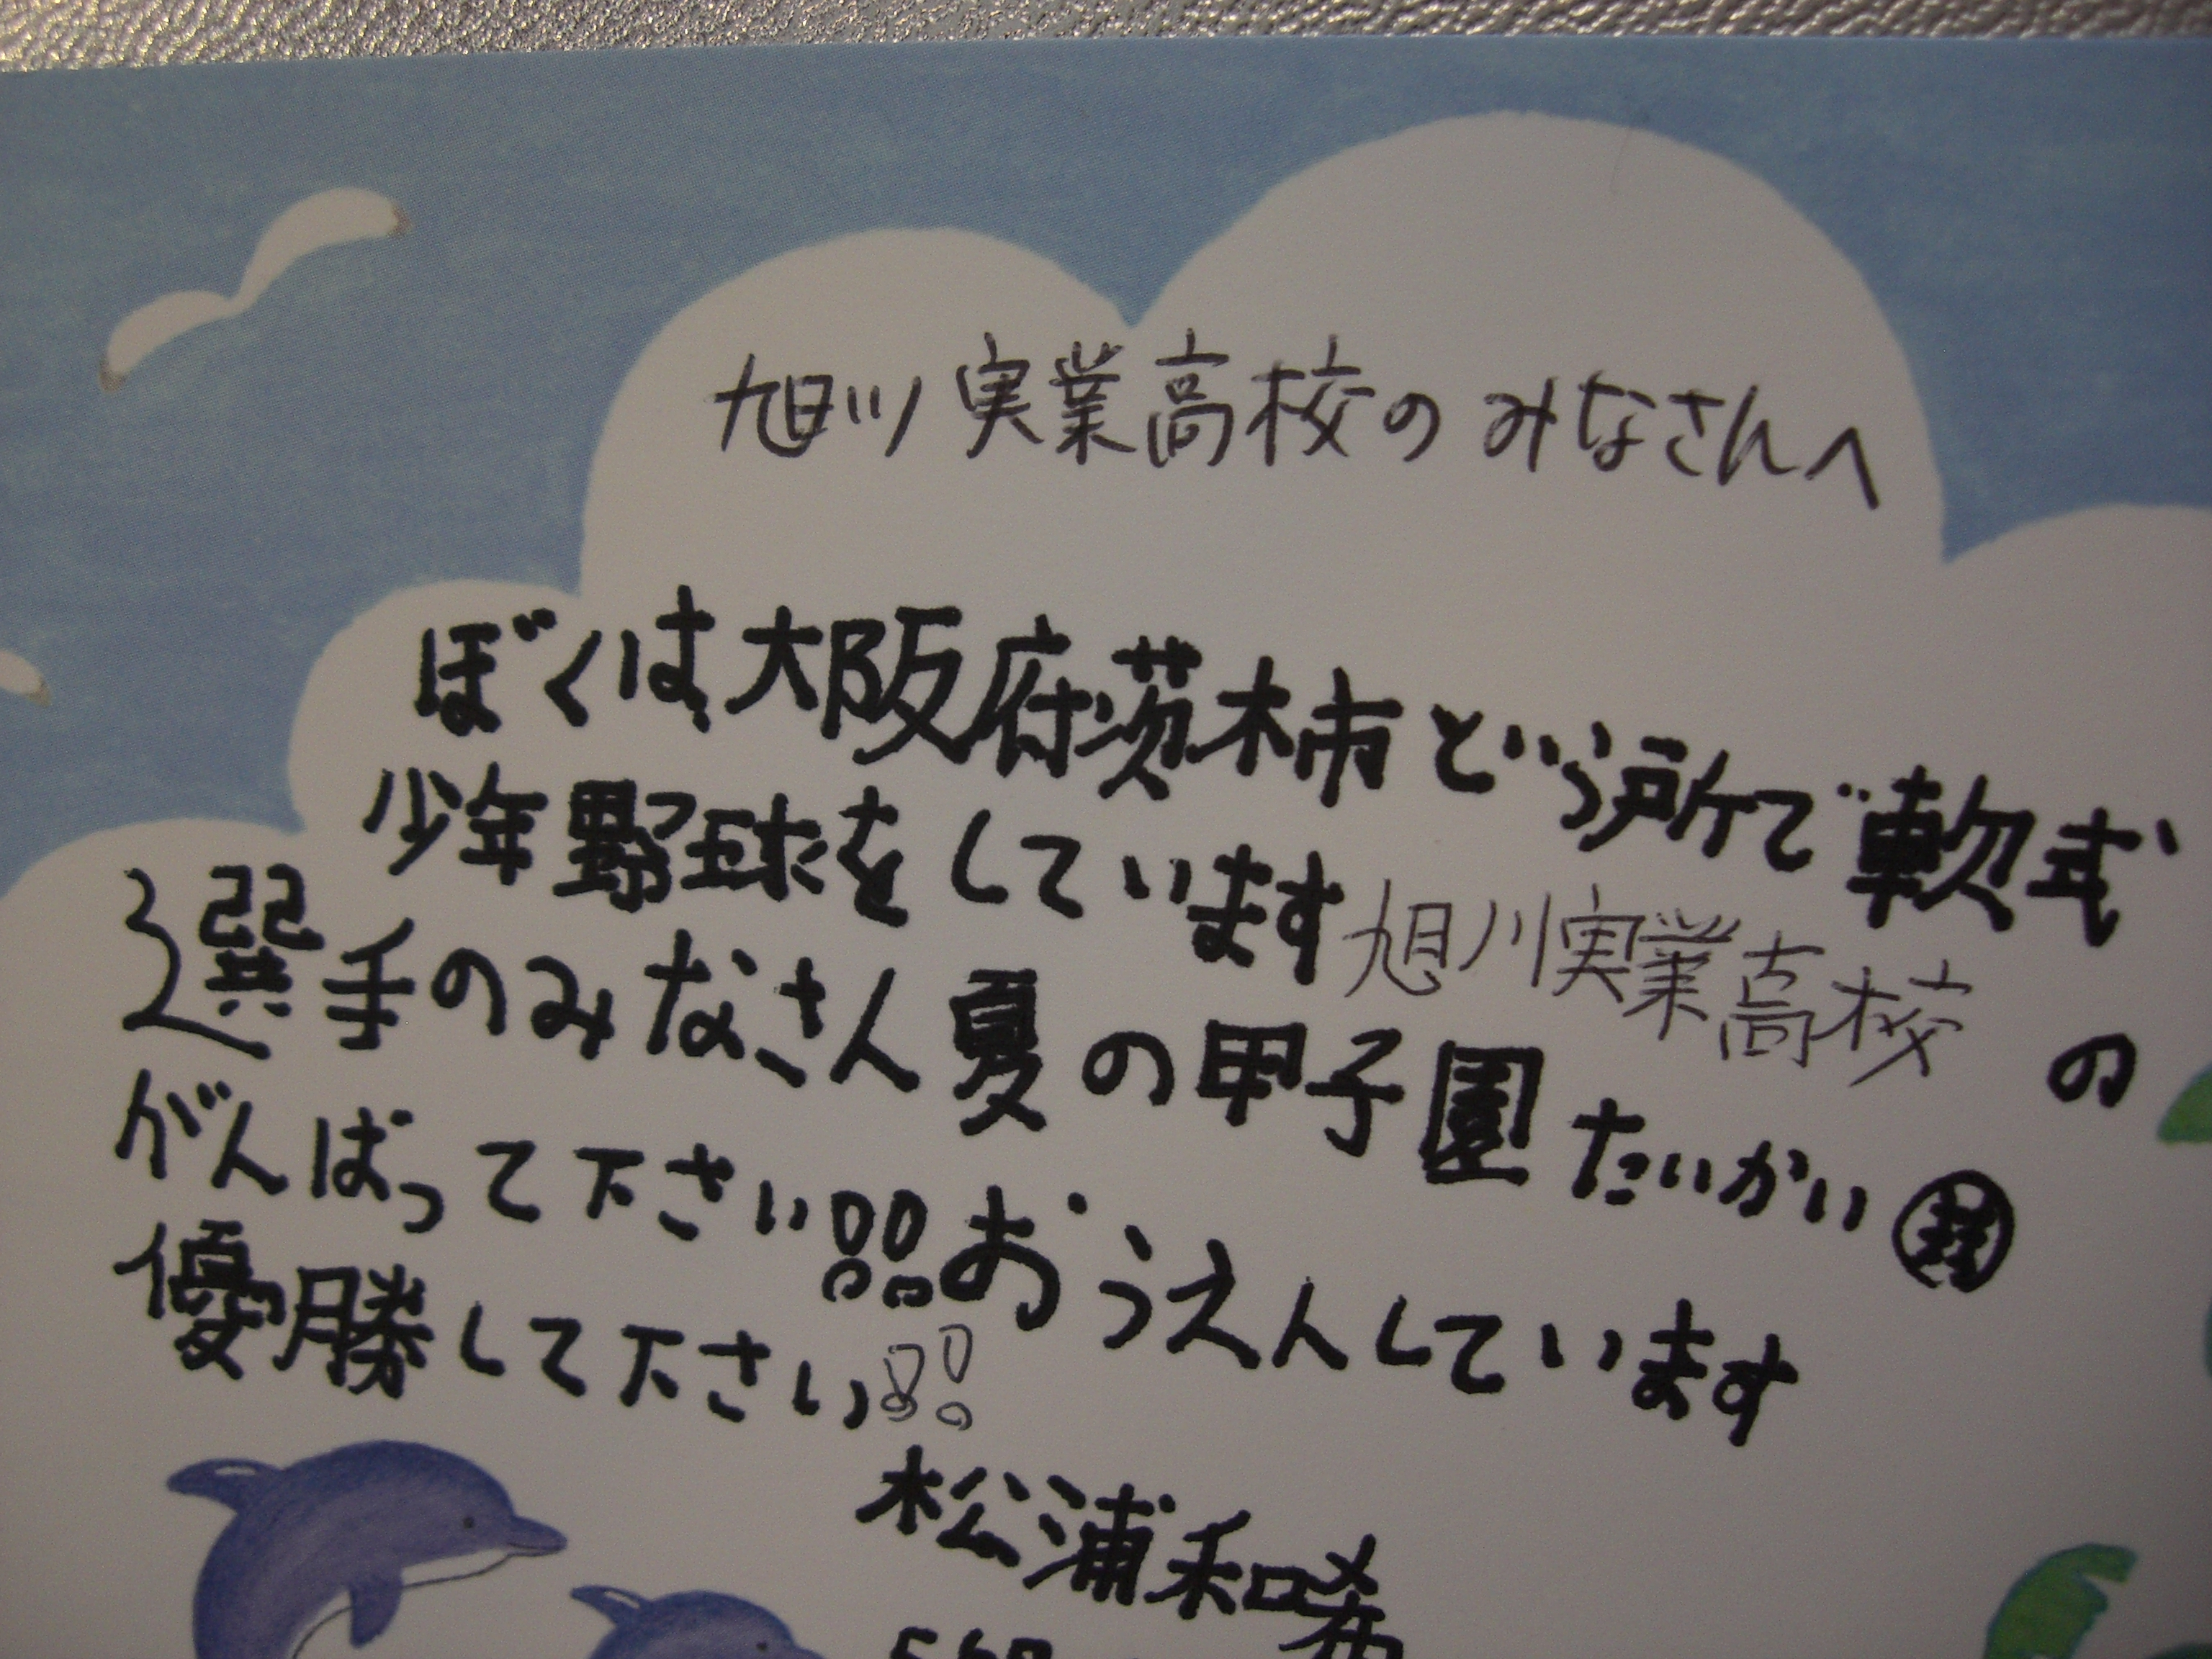 旭川実業高校のみなさんへ
ぼくは大阪府茨木市という所で軟式
少年野球をしています旭川実業高校の
選手のみなさん夏の甲子園たいかい
がんばって下さい!!おうえんしています
優勝して下さい!!
松浦和希